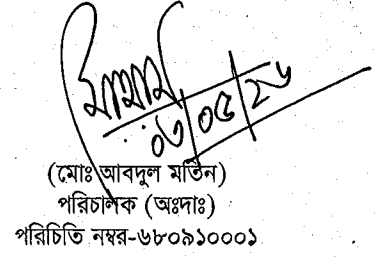 ০৬/০৫/২৬
(মোঃ আবদুল মতিন)
পরিচালক (অঃদাঃ)
পরিচিতি নম্বর-৬৮০৯১০০০১